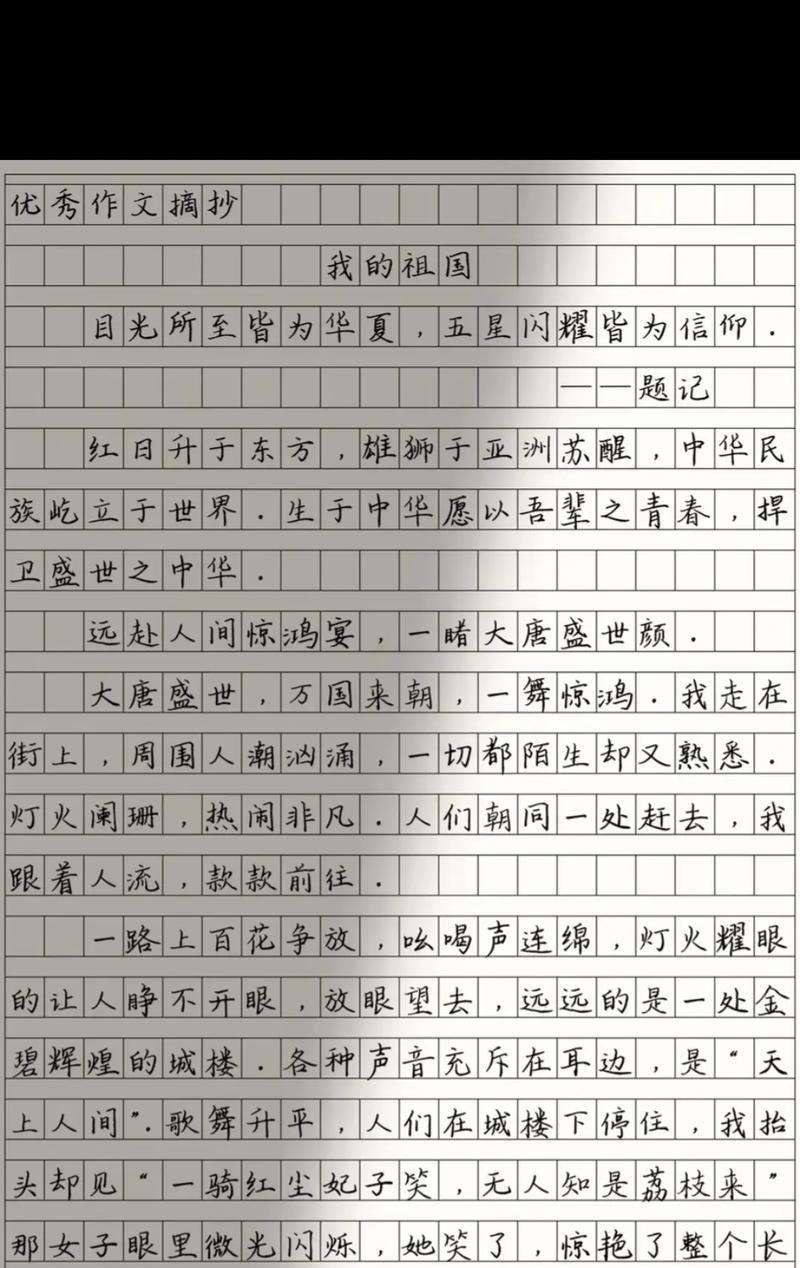 优秀作文摘抄
我的祖国
目光所至皆为华夏，五星闪耀皆为信仰.
——题记
红日升于东方，雄狮于亚洲苏醒，中华民
族屹立于世界.生于中华愿以吾辈之青春，捍
卫盛世之中华.
远赴人间惊鸿宴，一睹大唐盛世颜.
大唐盛世，万国来朝，一舞惊鸿.我走在
街上，周围人潮汹涌，一切都陌生却又熟悉.
灯火阑珊，热闹非凡.人们朝同一处赶去，我
跟着人流，款款前往.
一路上百花争放，吆喝声连绵，灯火耀眼
的让人睁不开眼，放眼望去，远远的是一处金
碧辉煌的城楼.各种声音充斥在耳边，是“天
上人间”.歌舞升平，人们在城楼下停住，我抬
头却见“一骑红尘妃子笑，无人知是荔枝来”
那女子眼里微光闪烁，她笑了，惊艳了整个长